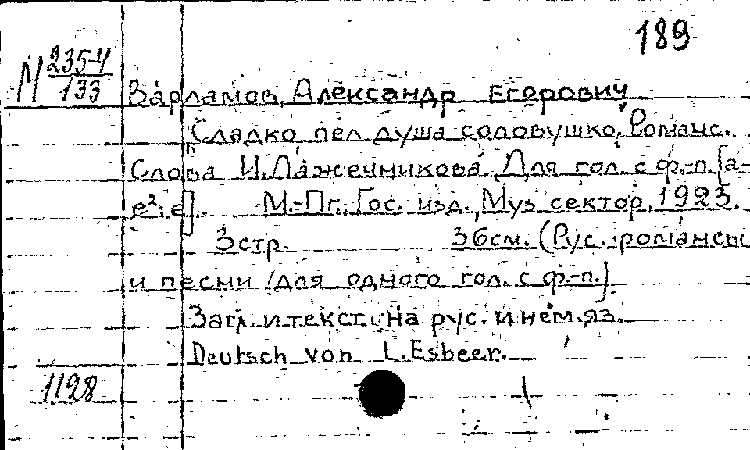 189
М 235-4/133
Варламов, Александр Егорович
"Сладко пел душа соловушко". Романс.
Слова И. Лажечникова. Для гол. с ф.-п. [а-
е²; e]. М.-Пг., Гос. изд., Муз. сектор, 1923.
3 стр. 36см. (Рус. романсы
и песни /для одного гол. с ф.-п.)
Загл. и текст на рус. и нем. яз.
Deutsch von L. Esbeer.
1128